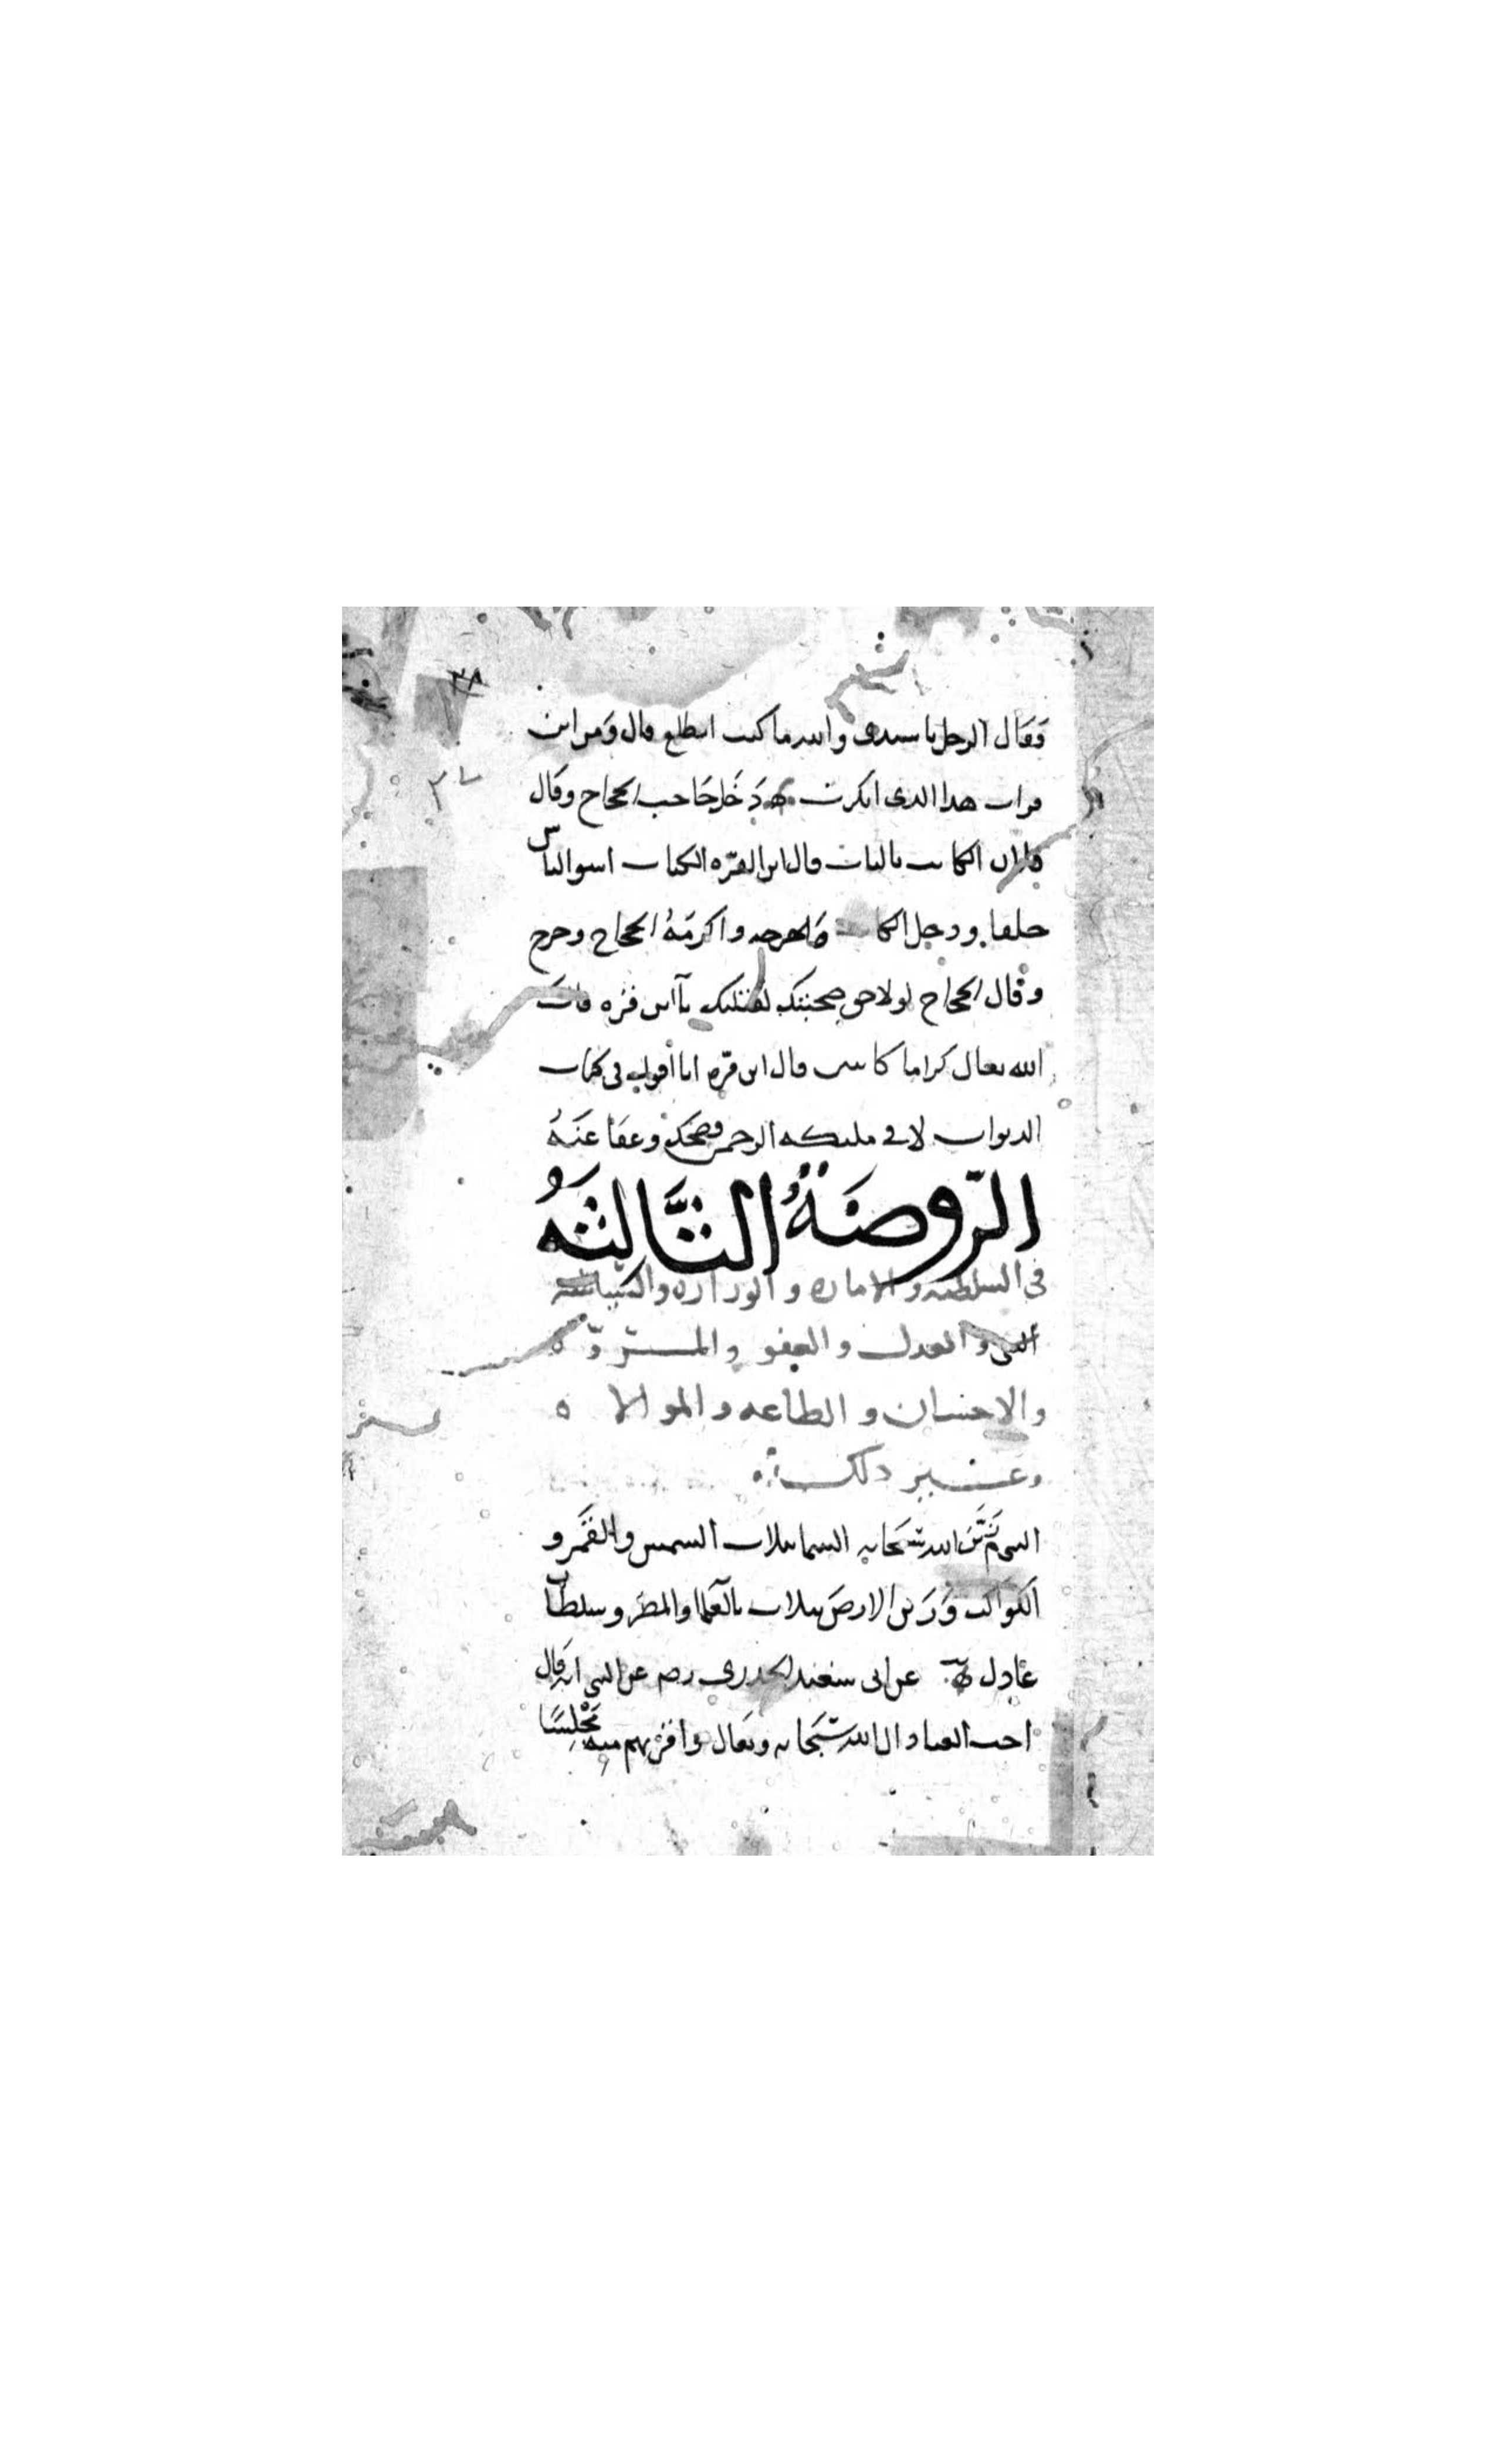 ٣٨
فقال الرجل يا سيدي والله ما كنت اطلع قال ومن اين
قرات هذا الذي انكرت دخل حاجب الحجاج وقال
فلان الكاتب بالباب قال ابن القره الكتاب اسوا الناس
خلقا ودخل الكاتب واكرمه الحجاج وخرج
وقال الحجاج لولا حق صحبتك لقتلتك يا ابن قره قال
الله تعالى كراما كاتبين قال ابن قره انا اقول في كتاب
الديوان لا في مليكه الرحمن فضحك وعفا عنه
الرّوضَةُ الثَّالِثَهُ
في السلطنه والاماره والوزاره والسياسه
والعدل والعفو والمسرّه
والاحسان والطاعه والموالاه
وغير ذلك
النبي م زَيَّن الله سبحانه السما بثلاث الشمس والقمر و
الكواكب وزين الارض بثلاث بالعلما والمطر وسلطان
عادل عن ابي سعيد الخدري رضه عن النبي انه قال
احب العباد الى الله سبحانه وتعالى واقربهم منه مجلسا